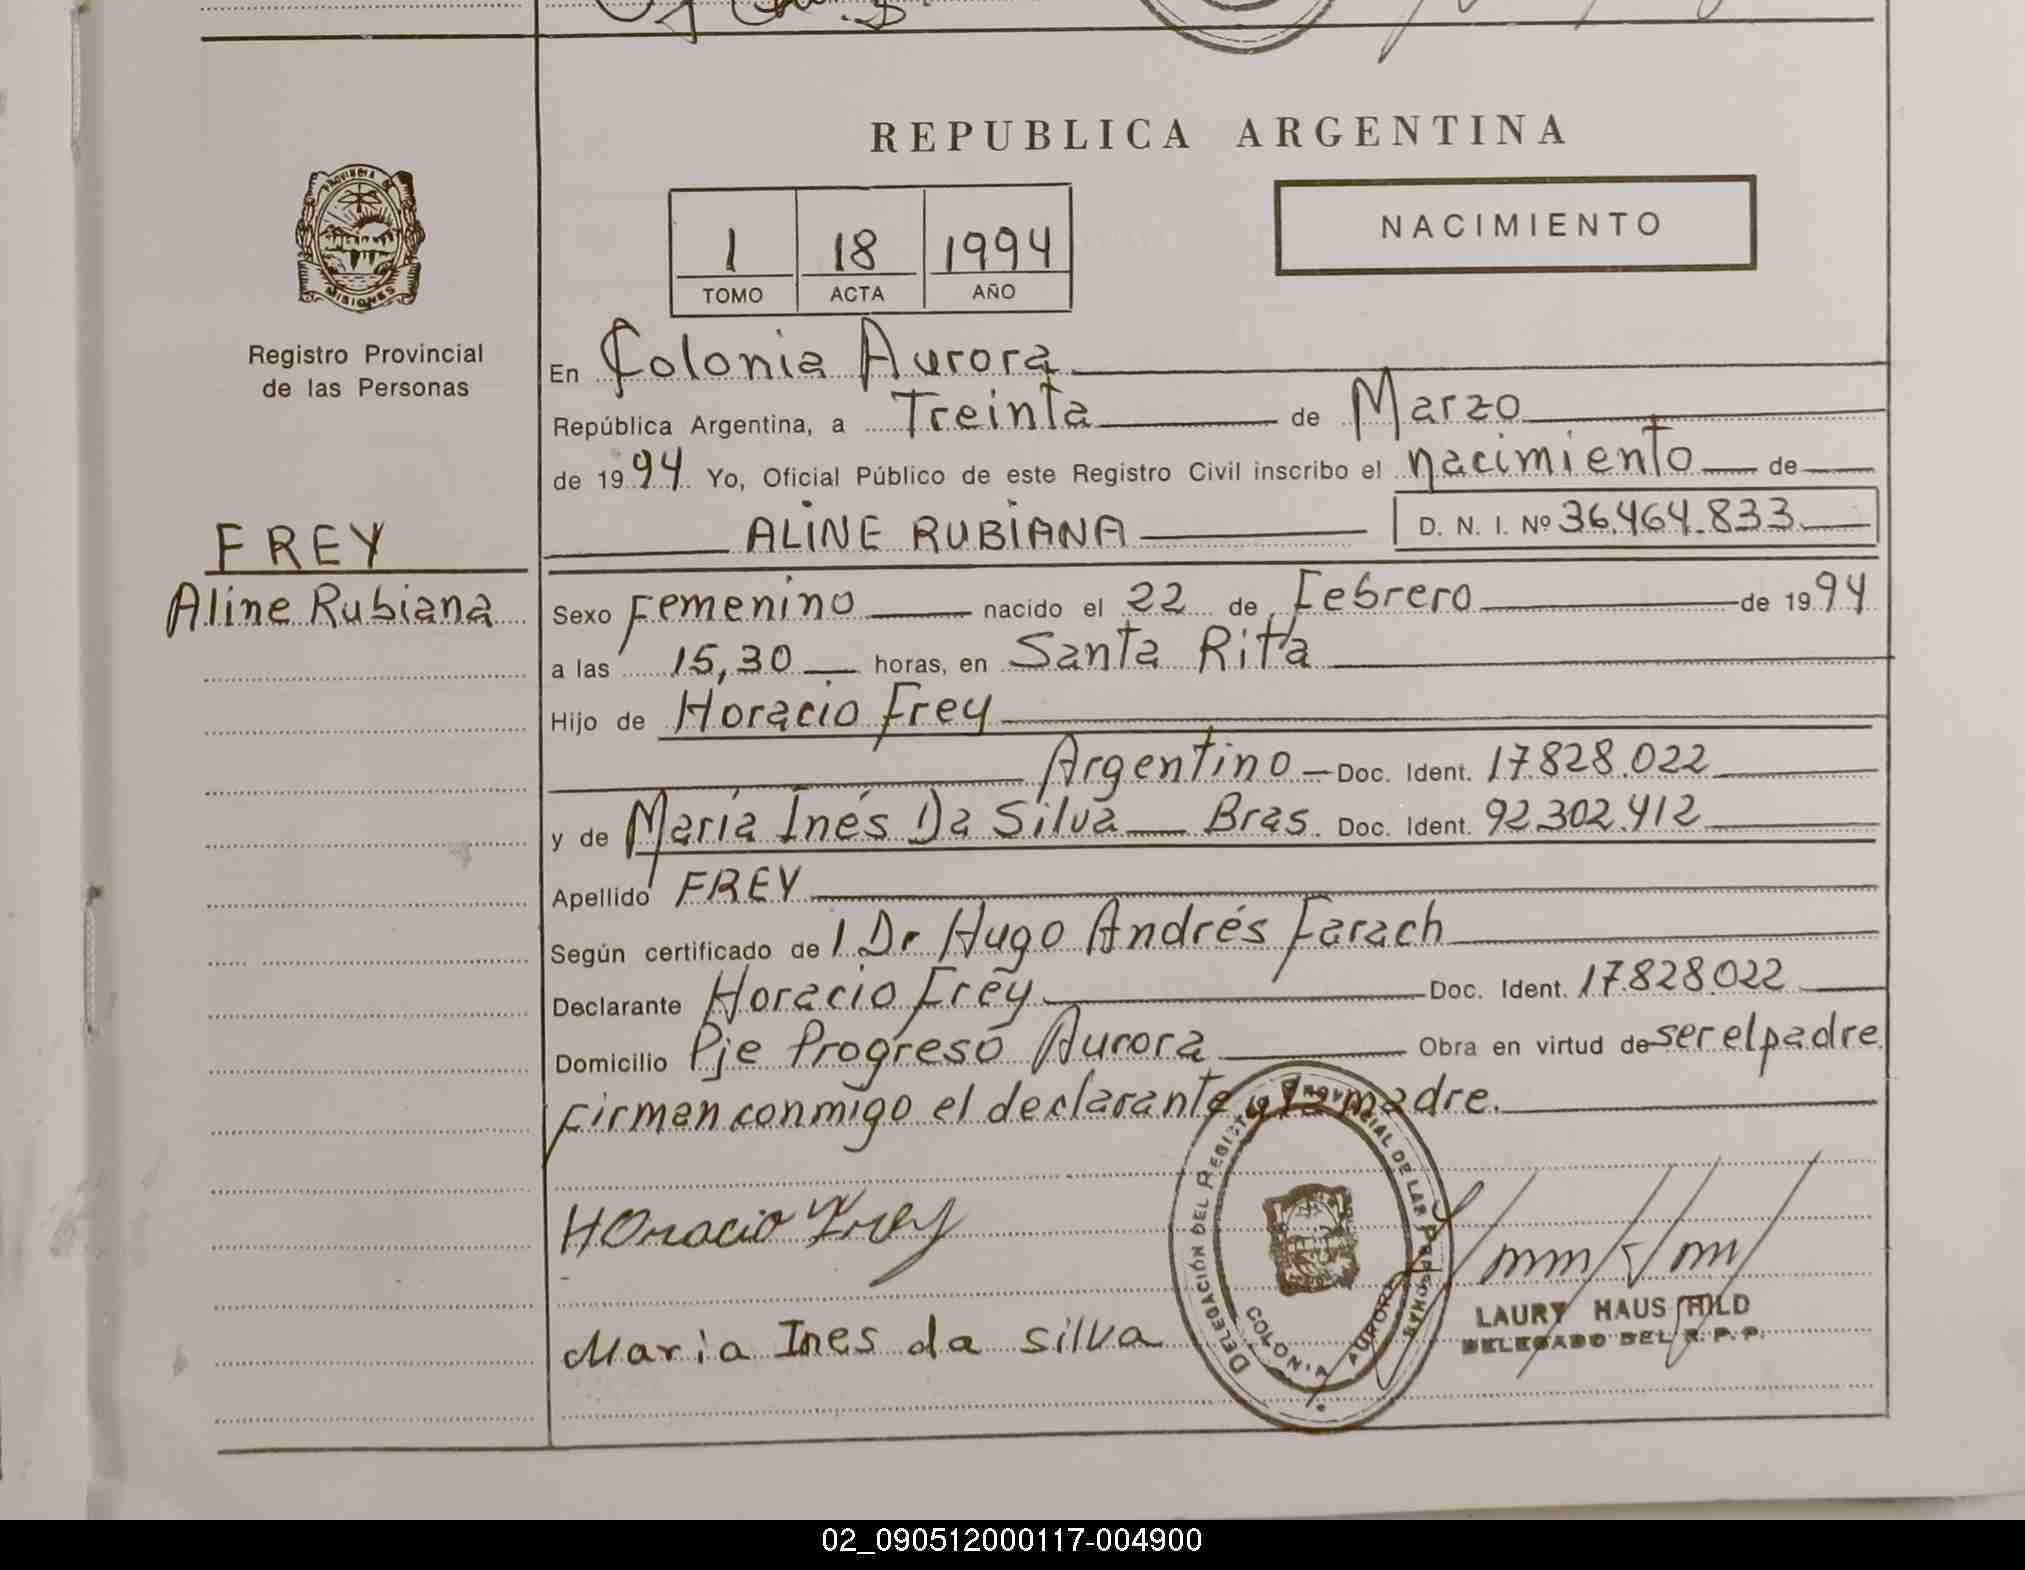 REPUBLICA ARGENTINA
PROVINCIA DE
MISIONES
Registro Provincial
de las Personas
1 18 1994
TOMO ACTA AÑO
NACIMIENTO
En Colonia Aurora
República Argentina, a Treinta de Marzo
de 1994 Yo, Oficial Público de este Registro Civil inscribo el nacimiento de
ALINE RUBIANA D. N. I. Nº 36.464.833
FREY
Aline Rubiana
Sexo Femenino nacido el 22 de Febrero de 1994
a las 15,30 horas, en Santa Rita
Hijo de Horacio Frey
Argentino Doc. Ident. 17.828.022
y de María Inés Da Silva Bras. Doc. Ident. 92.302.412
Apellido FREY
Según certificado de l Dr Hugo Andrés Farach
Declarante Horacio Frey Doc. Ident. 17.828.022
Domicilio Pje Progreso Aurora Obra en virtud de ser el padre
Firman conmigo el declarante y la madre.
Horacio Frey
Maria Ines da silva
DELEGACIÓN DEL REGISTRO PROVINCIAL DE LAS PERSONAS
COLONIA AURORA
LAURY HAUSHILD
DELEGADO DEL R. P. P.
02_090512000117-004900